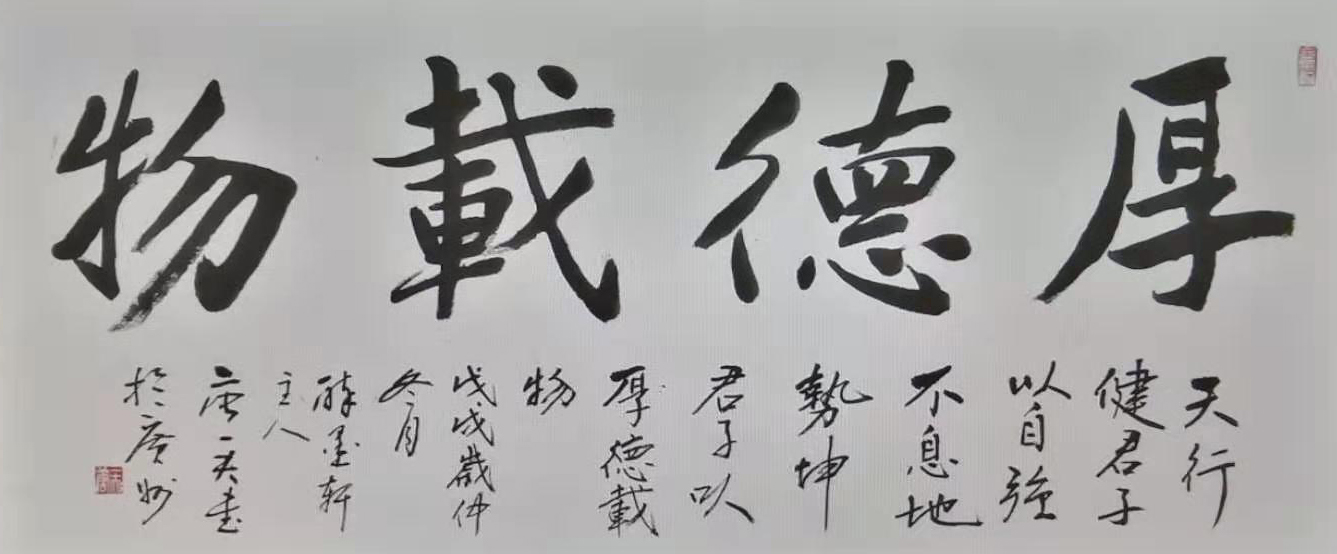 厚德載物
天行
健君子
以自强
不息地
勢坤
君子以
厚德載
物
戊戌歲仲
冬月
醉墨轩
主人
唐一夫书
於广州